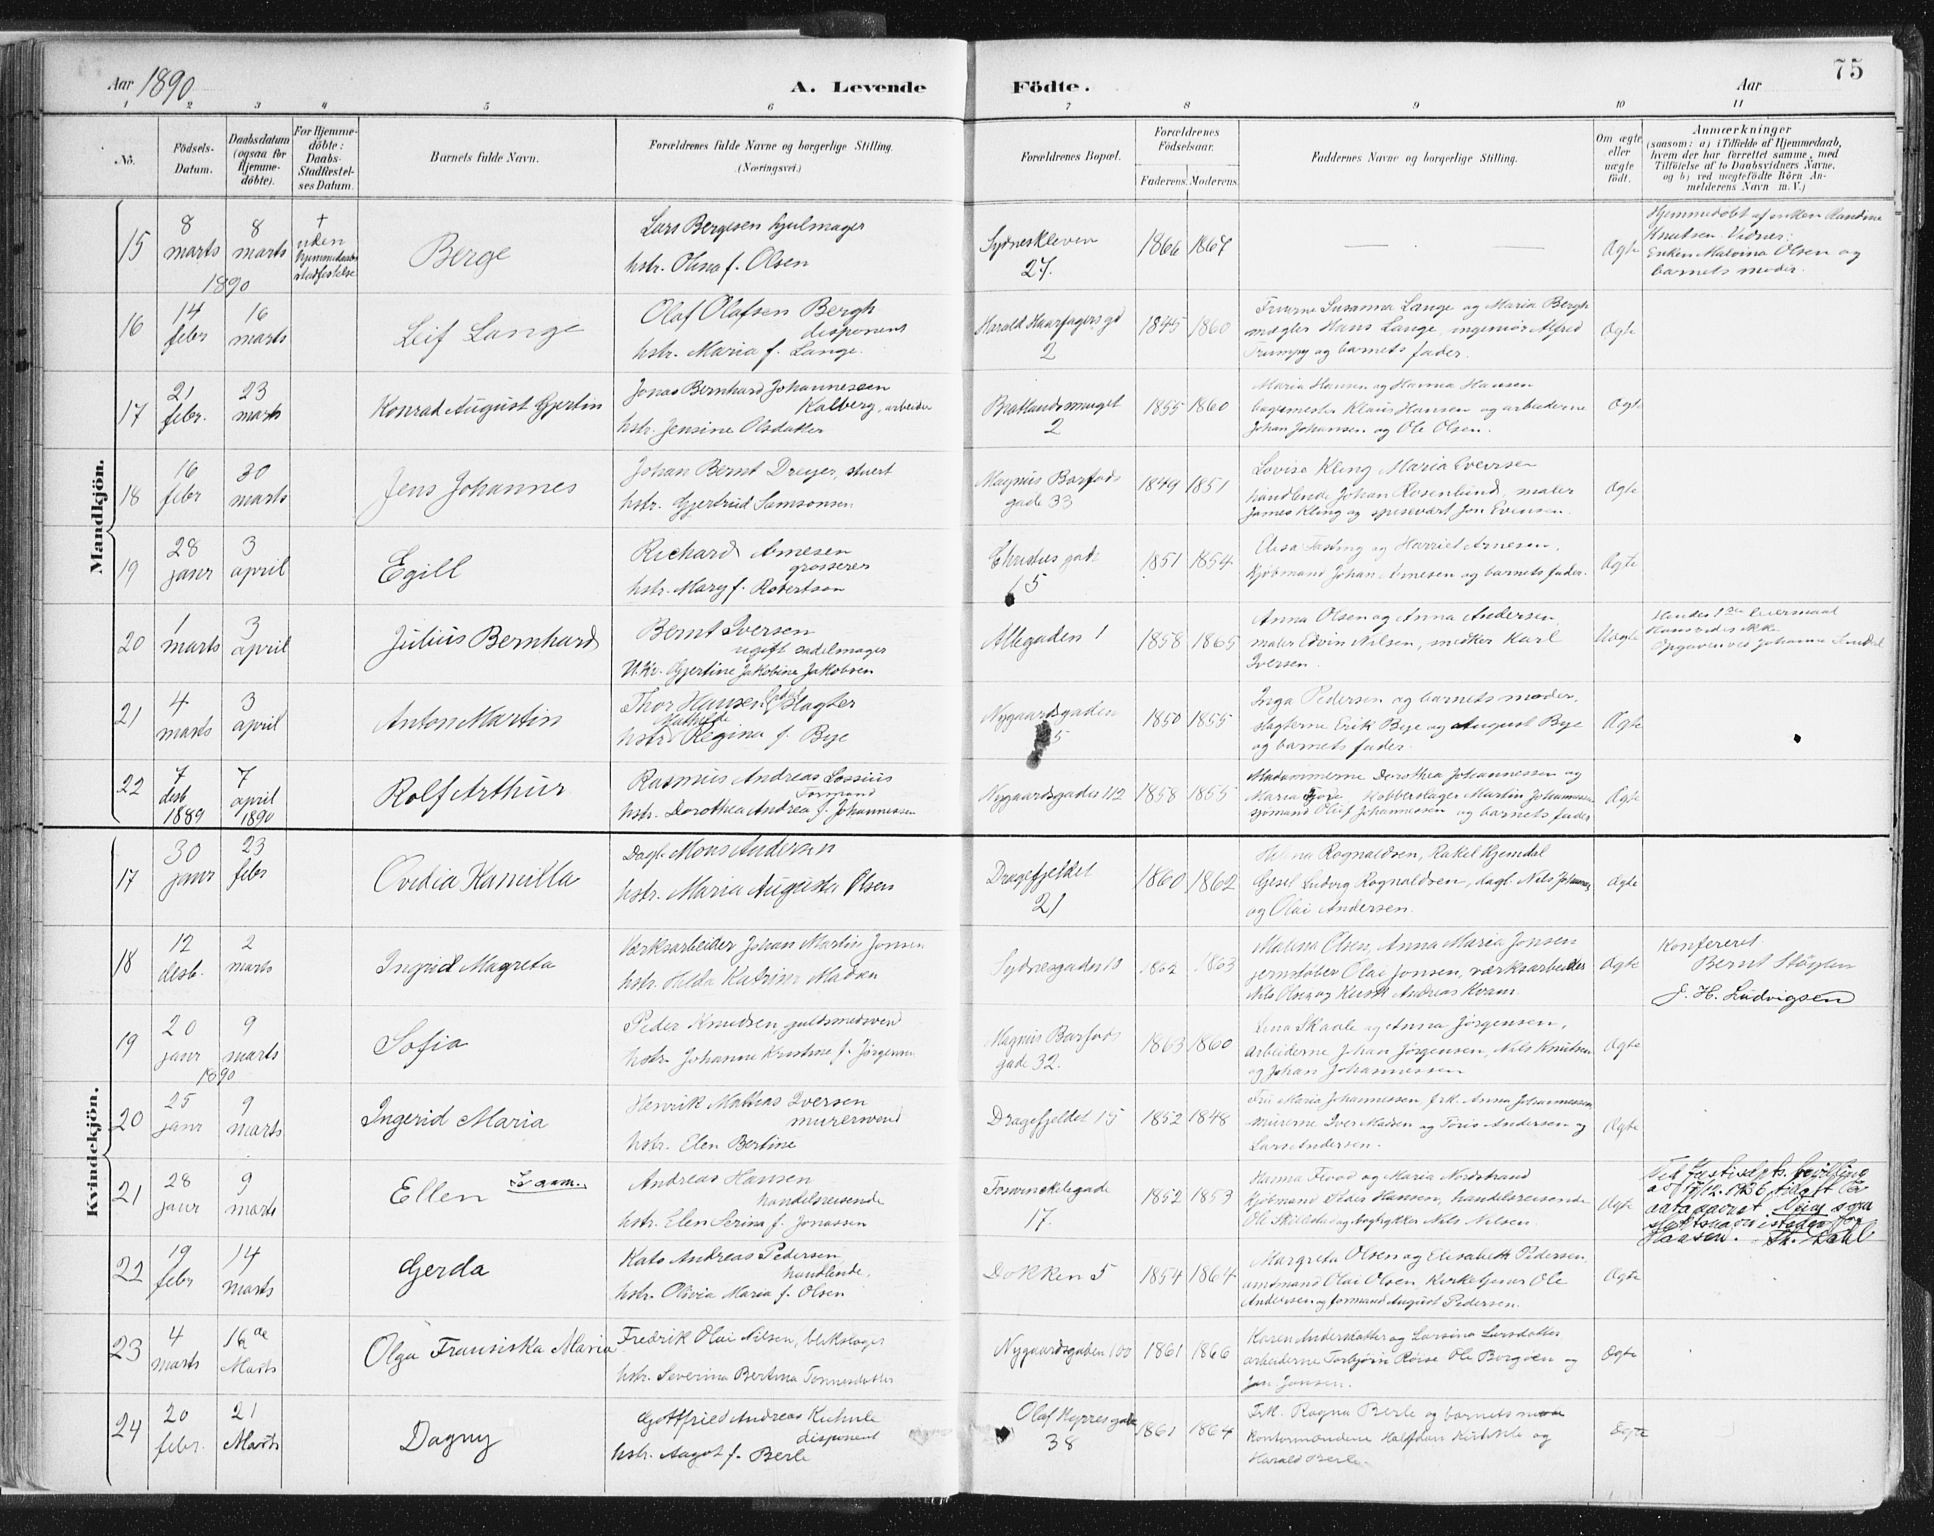 Aar 1890
A. Levende
Födte.
Aar
75
1 2 3 4 5 6 7 8 9 10 11
No.
Födsels-Datum.
Daabsdatum (ogsaa for Hjemme-döbte).
For Hjemme-döbte: Daabs-Stadfestel-ses Datum.
Barnets fulde Navn.
Forældrenes fulde Navne og borgerlige Stilling. (Næringsvei.)
Forældrenes Bopæl.
Forældrenes Födselsaar.
Faderens. Moderens.
Faddernes Navne og borgerlige Stilling.
Om ægte eller uægte födt.
Anmærkninger
(saasom: a) i Tilfælde af Hjemmedaab, hvem der har forrettet samme, med Tilföielse af to Daabsvidners Navne, og b) ved uægtefödte Börn An-melderens Navn m. V.)
Mandkjön.
15 8 marts 1890 8 marts + uden hjemmedaabs stadfestelse Berge
Lars Bergesen hjulmager
hstr. Olina f. Olsen
Sydneskleven 27. 1866 1867 Ægte
Hjemmedøbt af enken Randine
Knutsen. Vidner:
Enken Malvina Olsen og
barnets moder.
16 14 febr 16 marts Leif Lange
Olaf Olafsen Bergh
disponent
hstr. Maria f. Lange.
Harald Haarfagers gd 2 1845 1860
Fruerne Susanna Lange og Maria Bergh
mægler Hans Lange, ingeniør Alfred
Trumpy og barnets fader.
Ægte
17 21 febr. 23 marts Konrad August Gjertin
Jonas Bernhard Johannesen
Kalberg, arbeider
hstr. Jensine Olsdatter
2 1855 1860
Maria Hansen og Hanna Hansen
bagermester Klaus Hansen og arbeiderne
Johan Johansen og Ole Olsen.
Ægte
18 16 febr 30 marts Jens Johannes
Johan Bernt Dreyer, stuert
hstr. Gjertrud Samsonsen
Magnus Barfods gade 33 1849 1851
Lovise Kling Maria Evensen
handlende Johan Rosenlund, maler
James Kling og spisevært Jon Evensen.
Ægte
19 28 janr 3 april Egill
Richard Arnesen
grosserer
hstr. Mary f. Robertson
Christies gade 15 1851 1854
Fasting og Harriet Arnesen,
Kjøbmand Johan Arnesen og barnets fader.
Ægte
20 1 marts 3 april Julius Bernhard
Bernt Iversen
ugift sadelmager
U.k. Gjertine Jakobine Jakobsen
Allegaden 1 1858 1865
Anna Olsen og Anna Andersen,
maler Edvin Nilsen, snedker Karl
Iversen.
Uægte
Hendes 1ste leiermaal
Hans vides ikke
Opgaven ved Johanne
21 4 marts 3 april Anton Martin
Thor Hansen slagter
hstr Mathilde Regina f. Bye
Nygaardsgaden 5 1850 1855
Inga Pedersen og barnets moder.
slagterne Erik Bye og August Bye
og barnets fader.
Ægte
22 7 desb 1889 7 april 1890 Rolf Arthur
Rasmus Andreas Lossius
Formand
hstr. Dorothea Andrea f. Johannessen
Nygaardsgaden 112 1858 1855
Madammerne Dorothea Johannessen og
Maria Kobberslager Martin Johannessen
sjømand Oluf Johannessen og barnets fader
Ægte
Kvindekjön.
17 30 janr 23 febr Ovedia Kamilla
Dagl. Mons Andersen
hstr. Maria Augusta Olsen
Dragefjeldet 21 1860 1862
Helena Rognaldsen, Rakel Hjemdal
Gjesel Ludvig Rognaldsen, dagl. Nils
og Olai Andersen.
Ægte
18 12 desb. 2 marts Ingrid Magreta
Verksarbeider Johan Martin Jonsen
hstr. Hilda Katrine Madsen
Sydnesgaden 13 1862 1863
Malina Olsen, Anna Maria Jonsen
jernstøber Olai Jonsen, værksarbeider
Nils Olsen og Kusk Andreas Kvam.
Ægte
Konfereret.
Bernt Støylen
J. H. Ludvigsen
19 20 janr 1890 9 marts Sofia
Peder Knudsen, guldsmedsvend
hstr. Johanne Kristine f. Jørgensen
Magnus Barfods gade 32. 1863 1860
Lina Skaale og Anna Jørgensen,
arbeiderne Johan Jørgensen, Nils Knutsen
og Johan Johannessen
Ægte
20 25 janr 9 marts Ingerid Maria
Henrik Mathias Iversen
murersvend
hstr. Elen Bertine
Dragefjeldet 15 1852 1848
Fru Maria Johannessen frk. Anna Johannessen
murerne Iver Madsen og Tøris Andersen og
Lars Andersen.
Ægte
21 28 janr 9 marts Ellen Se anm.
Andreas Hansen
handelsreisende
hstr. Elen Serina f. Jonassen
Torvinckelsgade 17. 1852 1853
Hanna og Maria Nordstrand
Kjøbmand Peder Hansen, handelsreisende
Ole og bogtrykker Nils Nilsen.
Ægte
Ved Justisdpts. bevilling
av 17/12. 1936
som
slektsnavn istedenfor
Hansen.
22 19 febr 14 marts Gerda
Kato Andreas Pedersen
handlende.
hstr. Olivia Maria f. Olsen
Dokken 5 1854 1864
Margreta Olsen og Elisabeth Pedersen,
amtmand Olai Olsen, Kirketjener Ole
Andersen og formand August Pedersen.
Ægte
23 4 marts 16de Marts Olga Fransiska Maria
Fredrik Olai Nilsen, blikslager
hstr. Severina Bertina Tønnesdatter
Nygaardsgaden 100 1861 1866
Karen Andersdatter og Larsina Larsdatter
arbeiderne Torbjørn Røise Ole Borgøen og
Jon Jonsen.
Ægte
24 20 febr. 21 Marts Dagny
Gottfried Andreas Kuhnle
disponent
hstr. Aagot f. Berle
Olaf Kyrres gade 38 1861 1864
Frk. Ragna Berle og barnets moder
Kontormændene Halfdan Kuhnle og
Harald Berle.
Ægte